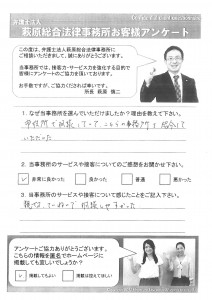 弁護士法人
萩原総合法律事務所お客様アンケート
この度は、弁護士法人萩原総合法律事務所に
ご相談いただきまして、誠にありがとうございます。
当事務所では、接客力・サービス力を強化する目的で
皆様にアンケートのご協力を頂いております。
お手数ですが、ご協力くださればと幸いです。
所長 萩原 慎二
1. なぜ当事務所を選んでいただけますか？理由を教えて下さい。
市役所で
いただいた
2. 当事務所のサービスや接客についてのご感想をお聞かせ下さい。
非常に良かった 良かった 普通 悪かった
3. 当事務所のサービスや接客について感じたことをご記入下さい。
アンケートご協力ありがとうございます。
こちらの情報を匿名でホームページに
掲載しても宜しいでしょうか？
掲載してもよい 掲載は控えてほしい